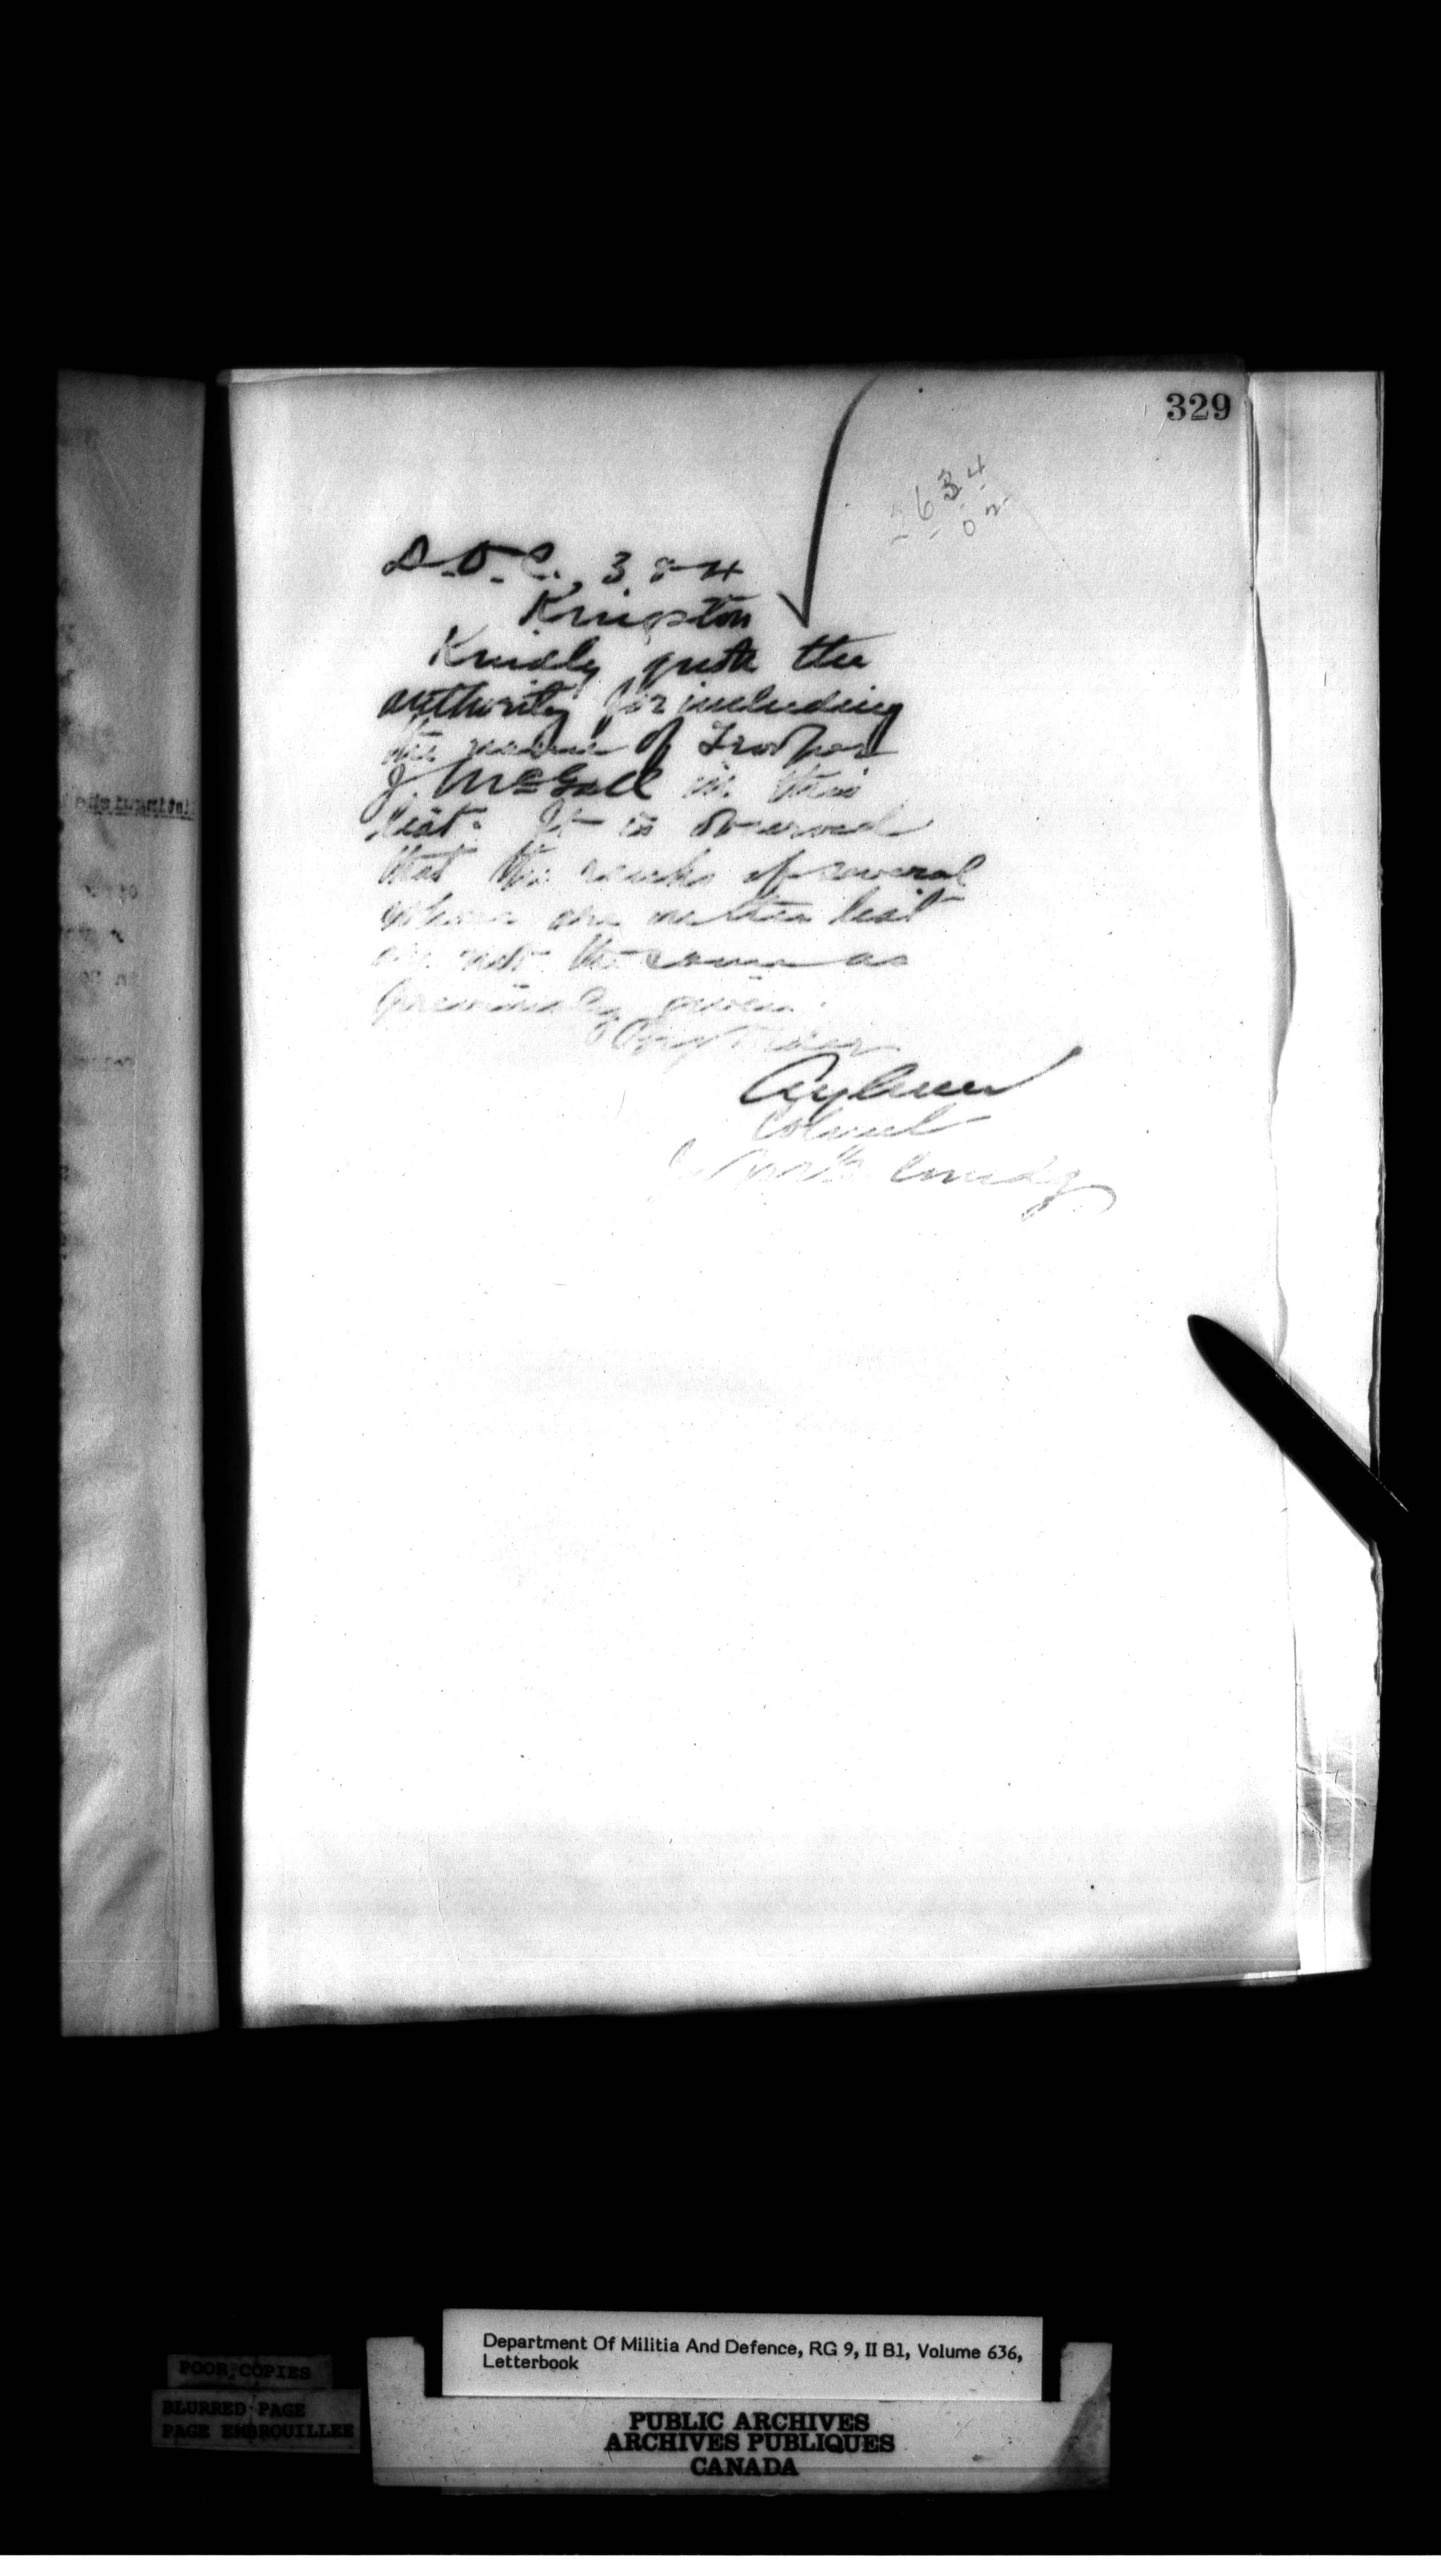 329
2634
02
D.O.C., 3 & 4
Kingston
Kindly quote the
authority for including
the name of Trooper
J. McGall in this
list. It is observed
that the ranks of several
whom are in this list
are not the same as
previously given.
By Order
Aylmer
Colonel
Department Of Militia And Defence, RG 9, II B1, Volume 636,
Letterbook
POOR COPIES
BLURRED PAGE
PAGE EMBROUILLEE
PUBLIC ARCHIVES
ARCHIVES PUBLIQUES
CANADA